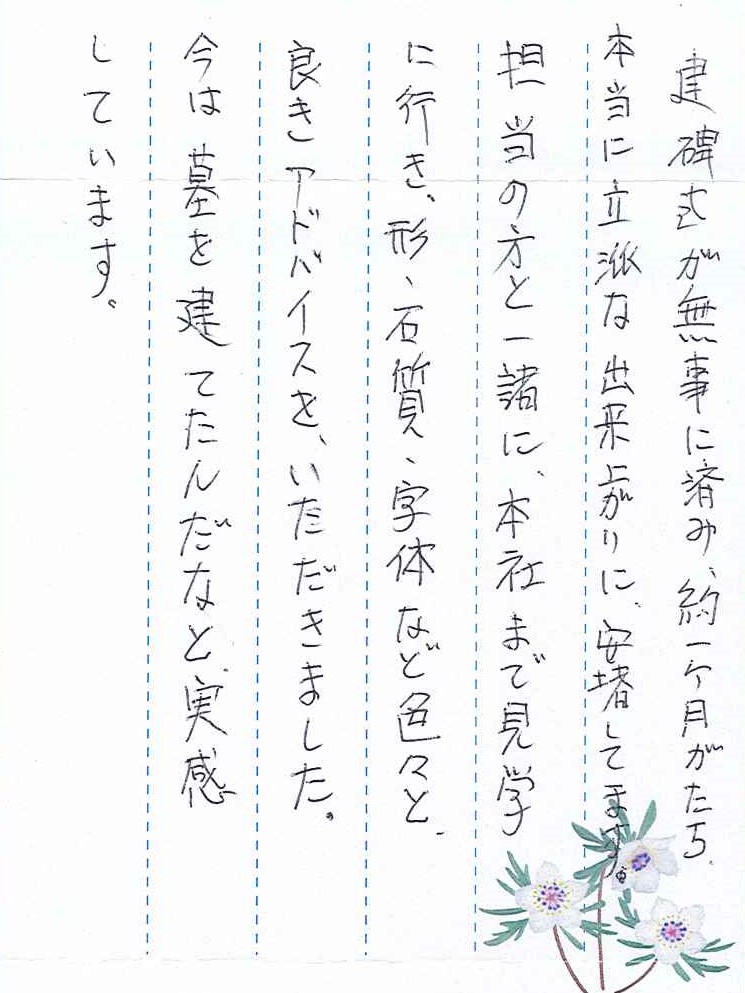 建碑式が無事に済み、約一ケ月がたち、
本当に立派な出来上がりに、安堵してます。
担当の方と一諸に、本社まで見学
に行き、形、石質、字体など色々と、
良きアドバイスを、いただきました。
今は墓を建てたんだなと、実感
しています。